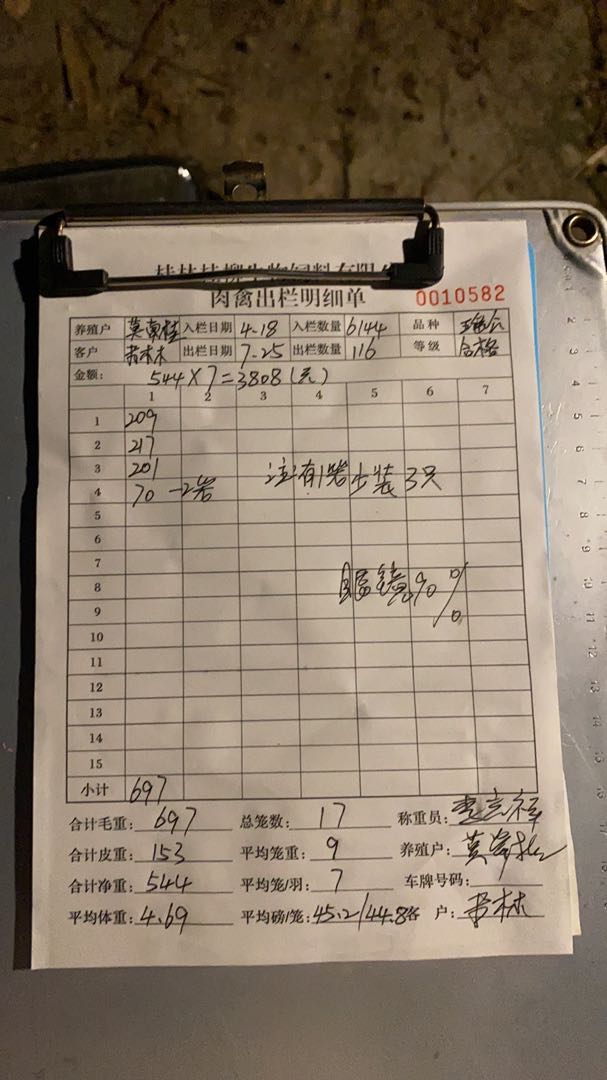 肉禽出栏明细单 0010582
养殖户 莫南桂 入栏日期 4.18 入栏数量 6144 品种
客户 入栏 出栏日期 7.25 出栏数量 116 等级 合格
金额: 544×7=3808(元)
1 2 3 4 5 6 7
1 209
2 217
3 201
4 70-2笼 注有1笼少装3只
5
6
7
8 眼镜90%
9
10
11
12
13
14
15
小计 697
合计毛重: 697 总笼数: 17 称重员:
合计皮重: 153 平均笼重: 9 养殖户:
合计净重: 544 平均笼/羽: 7 车牌号码:
平均体重: 4.69 平均磅/笼: 45.2/44.8 客 户: